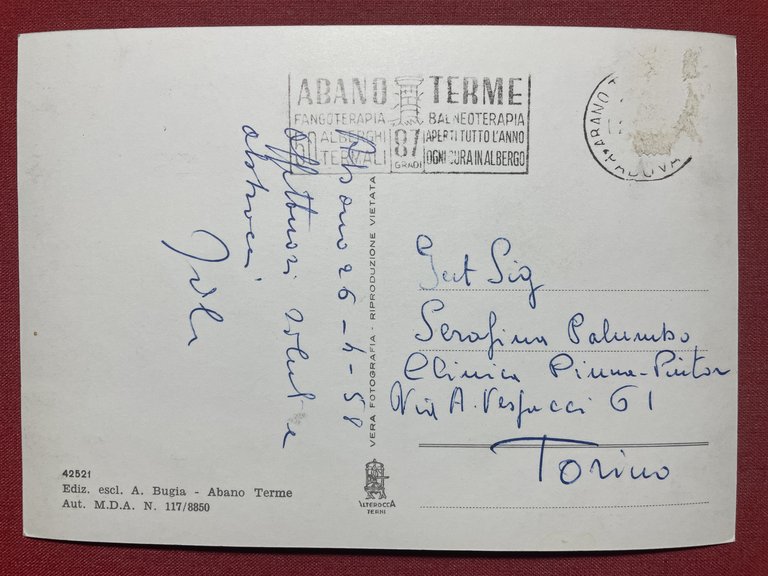 ABANO TERME
FANGOTERAPIA BALNEOTERAPIA
60 ALBERGHI TERMALI
87 GRADI
APERTI TUTTO L'ANNO
OGNI CURA IN ALBERGO
ABANO
PADOVA
Abano 26-4-58
affettuosi saluti e
abbracci
VERA FOTOGRAFIA - RIPRODUZIONE VIETATA
Gent Sig
Serafina Palumbo
Clinica Pinna-Pintor
Via A. Vespucci 61
Torino
42521
Ediz. escl. A. Bugia - Abano Terme
Aut. M.D.A. N. 117/8850
ALTEROCCA
TERNI